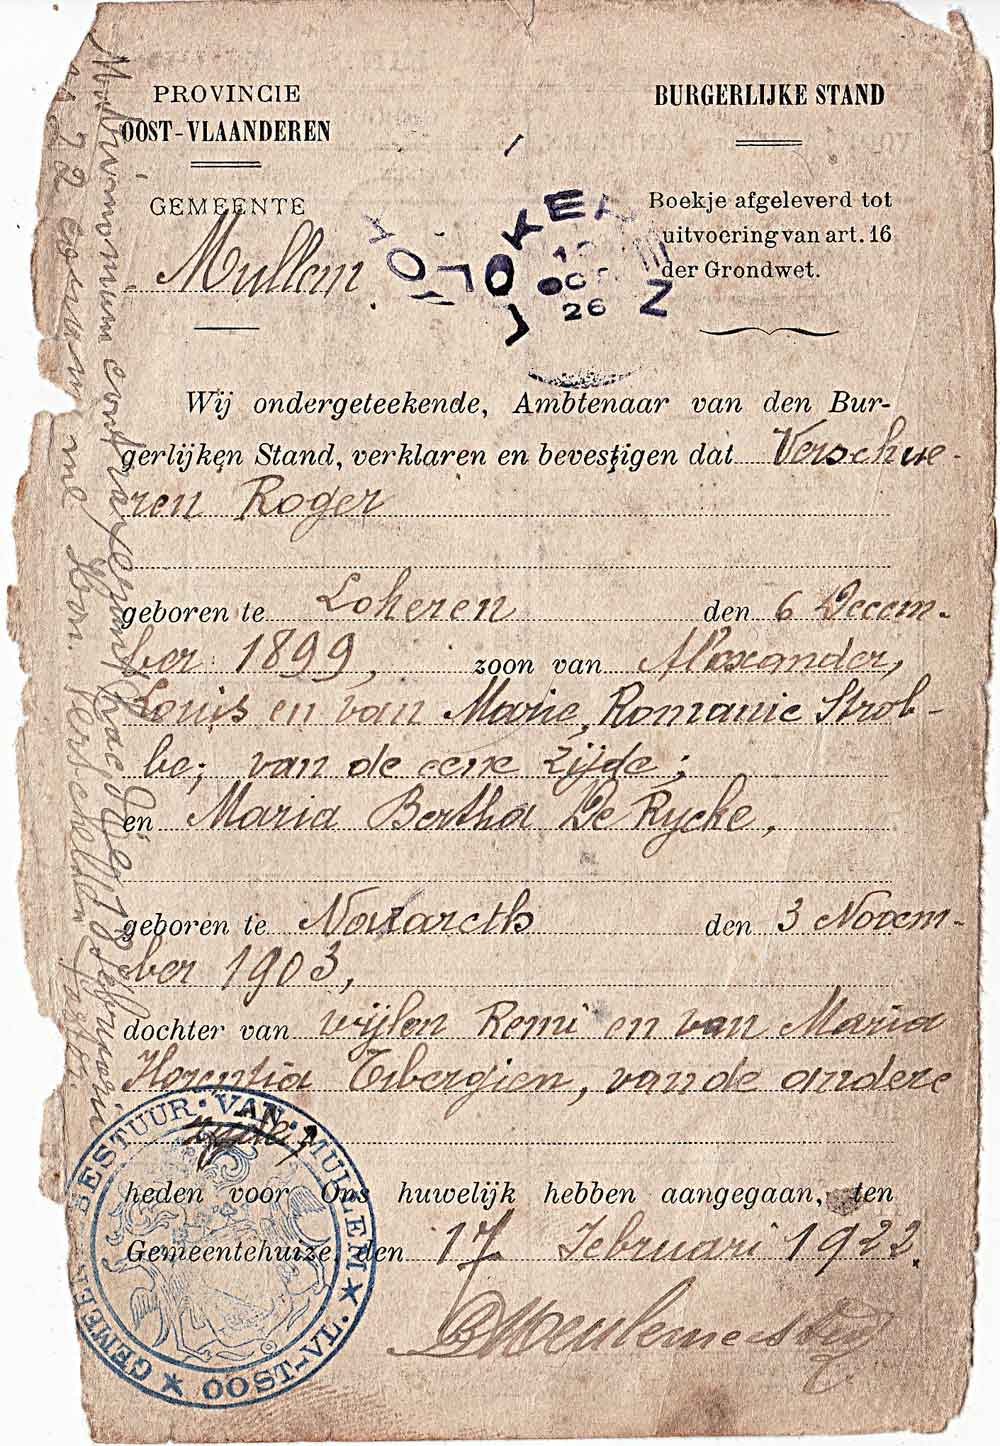 PROVINCIE
OOST-VLAANDEREN
GEMEENTE
Mullem
BURGERLIJKE STAND
Boekje afgeleverd tot
uitvoering van art. 16
der Grondwet.
OCT
26
Wij ondergeteekende, Ambtenaar van den Bur-
gerlijken Stand, verklaren en bevestigen dat Verschue-
ren Roger
geboren te Lokeren den 6 Decem-
ber 1899, zoon van Alexander,
Louis en van Marie, Romanie Strob-
be; van de eene zijde;
en Maria Bertha De Rycke,
geboren te Nazareth den 3 Novem-
ber 1903,
dochter van wijlen Remi en van Maria
Horentia Tibergien, van de andere
zijde,
heden voor Ons huwelijk hebben aangegaan, ten
Gemeentehuize, den 17 Februari 1922.
GEMEENTE BESTUUR · VAN · MULLEM ★ OOST-VL. ★
Matrimonium contraxerunt hac die 18 februarii
1922 coram me